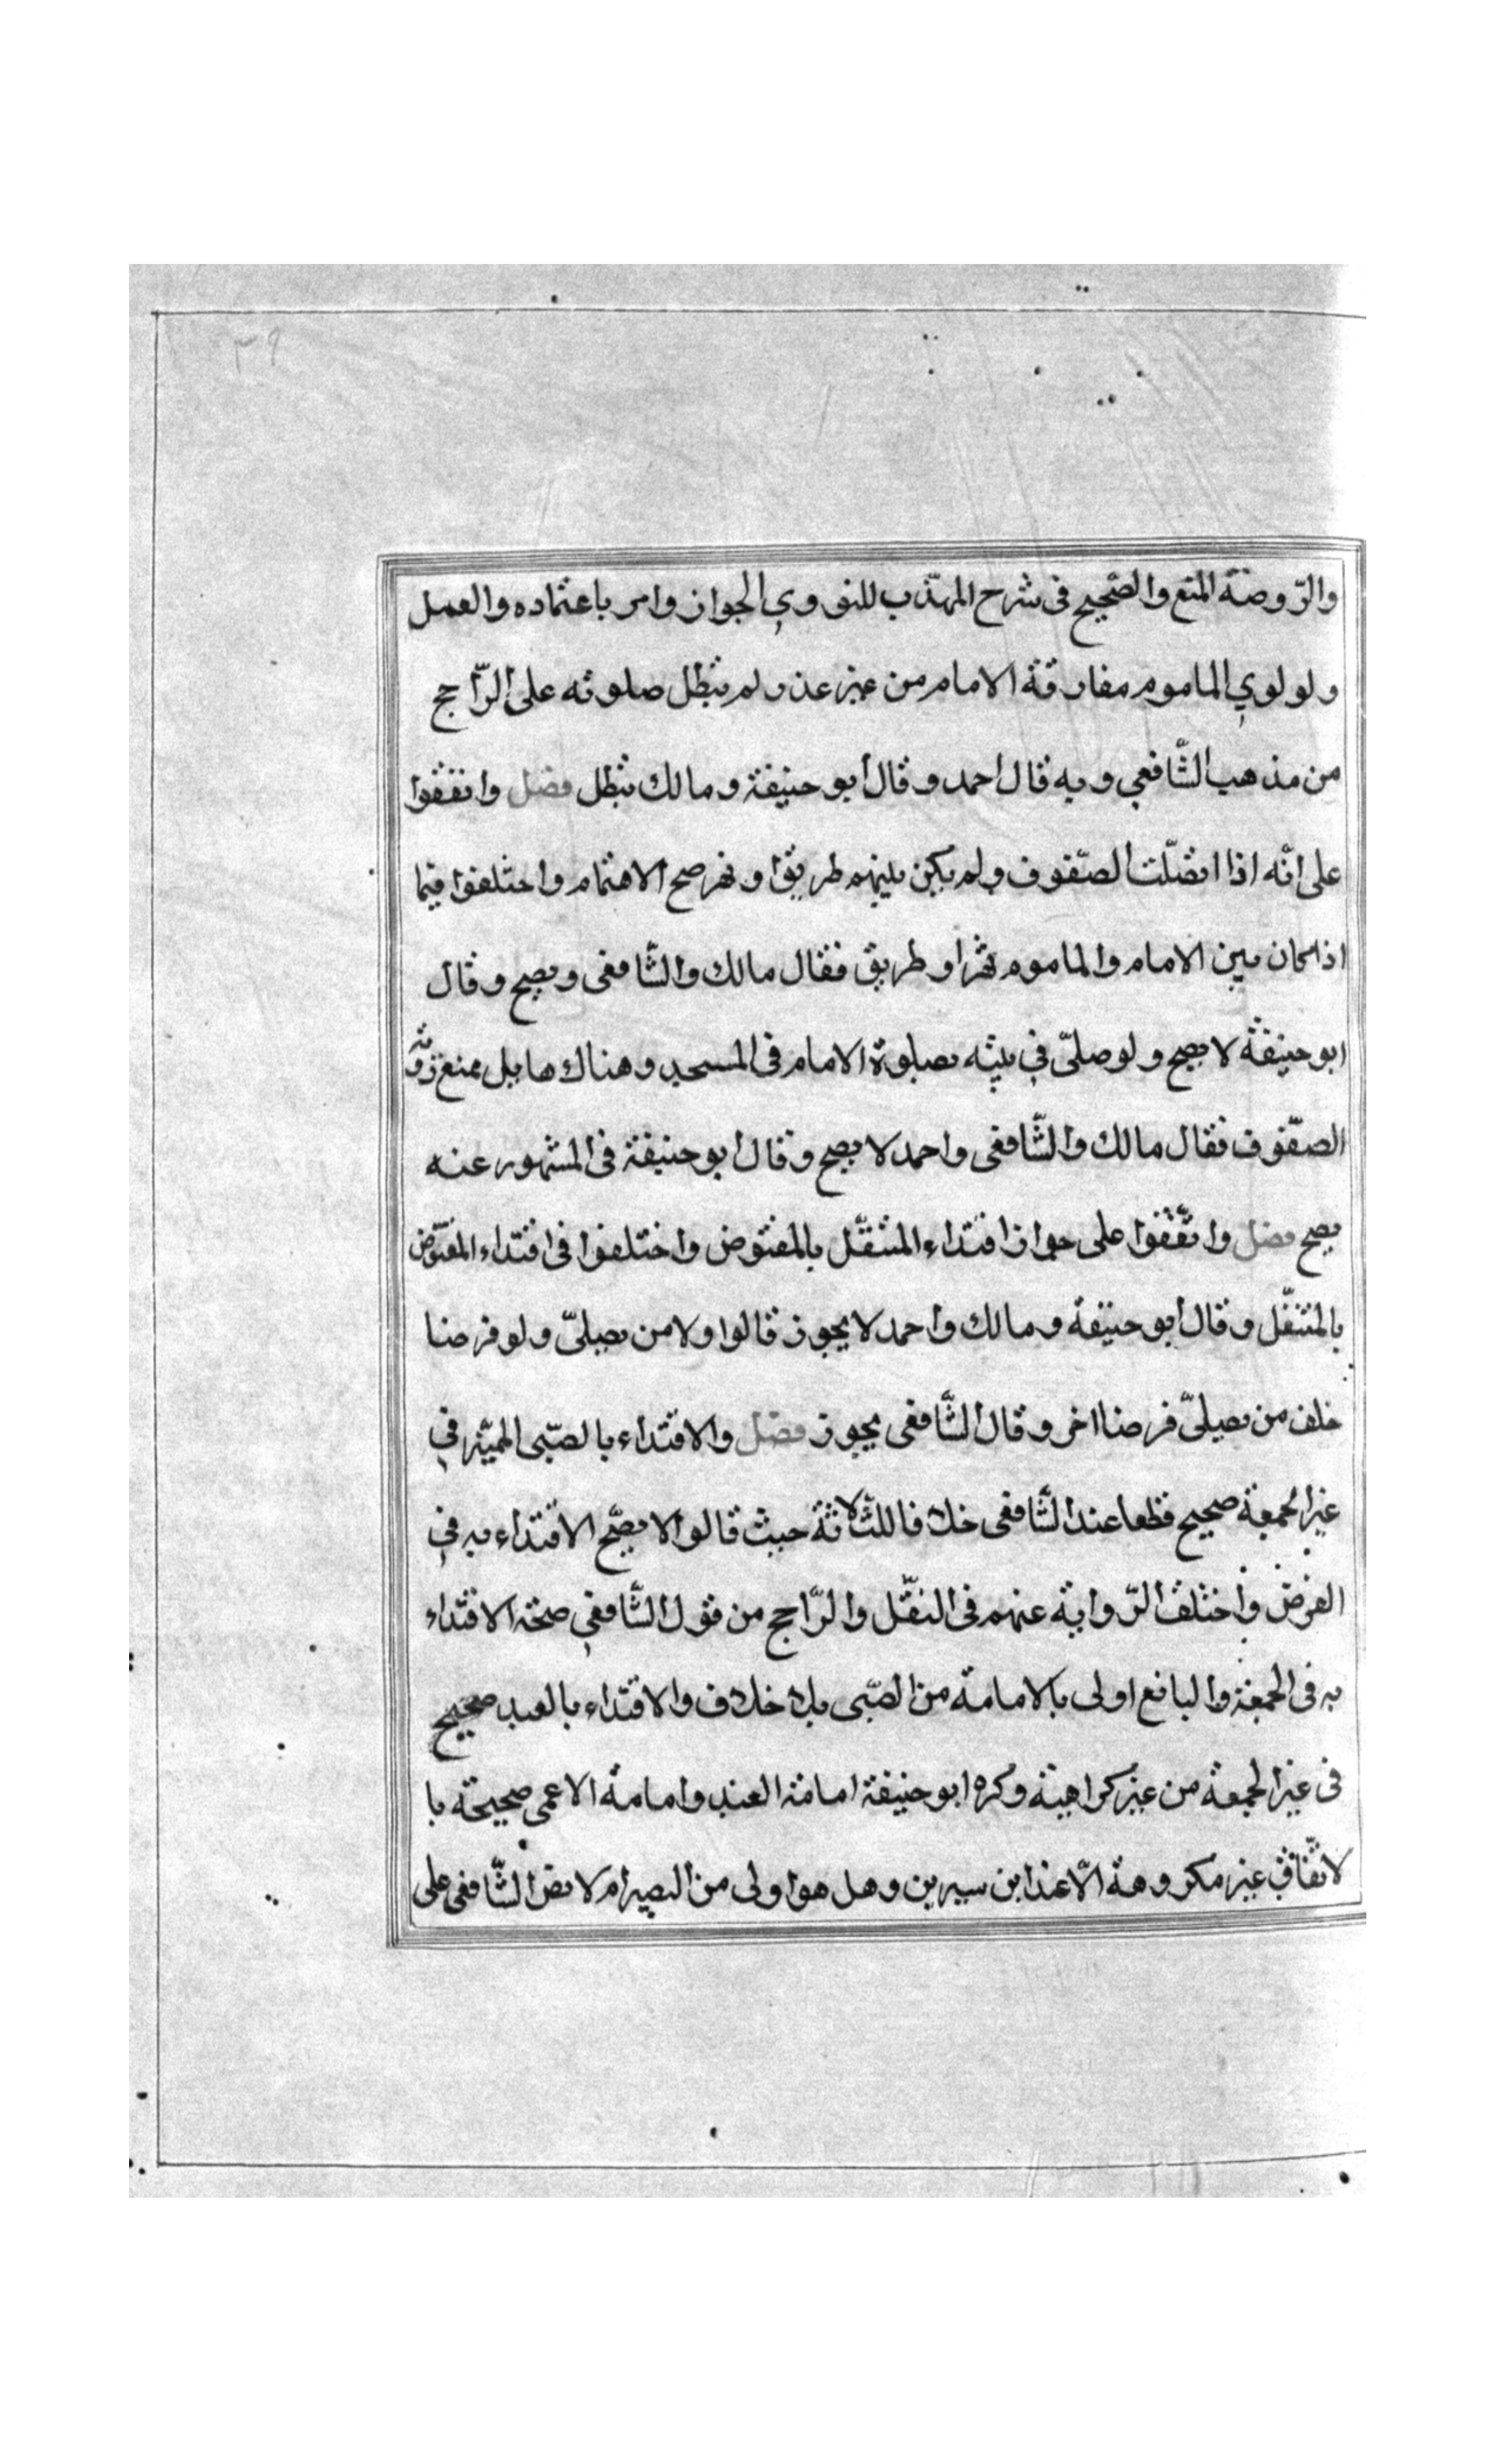 ٣٩
والرّوضة المنع والصّحيح فى شرح المهذّب للنووي الجواز وامر باعتماده والعمل
ولو لوي الماموم مفارقة الامام من غير عذر لم تبطل صلوته على الرّاجح
من مذهب الشّافعي وبه قال احمد وقال ابو حنيفة ومالك تبطل فصل واتفقوا
على انّه اذا اتصّلت الصّفوف ولم يكن بينهم طريق او نهر صح الاهتمام واختلفوا فيما
اذا كان بين الامام والماموم نهر او طريق فقال مالك والشّافعى ويصح وقال
ابو حنيفة لا يصح ولو صلّى في بيته بصلوة الامام فى المسجد وهناك هايل يمنع رؤية
الصّفوف فقال مالك والشّافعى واحمد لا يصح وقال ابو حنيفة فى المشهور عنه
يصح فصل واتّفقوا على جواز اقتداء المتنفّل بالمفترض واختلفوا فى اقتداء المفترض
بالمتنفّل وقال ابو حنيفة ومالك واحمد لا يجوز قالوا ولا من يصلىّ ولو فرضا
خلف من يصلىّ فرضا اخر وقال الشّافعى يجوز فصل والاقتداء بالصّبى المميّز في
غير الجمعة صحيح قطعا عند الشّافعى خلافا للثّلاثة حيث قالوا لا يصّح الاقتداء به في
الفرض واختلف الرّواية عنهم فى النفّل والرّاجح من قول الشّافعي صحّة الاقتداء
به فى الجمعة والبالغ اولى بالامامة من الصّبى بلا خلاف والاقتداء بالعبد صحيح
فى غير الجمعة من غير كراهية وكره ابو حنيفة امامة العبد وامامة الاعمى صحيحة با
لاتّفاق غير مكروهة الّا عند ابن سيرين وهل هو اولى من البصير ام لا نص الشّافعى على